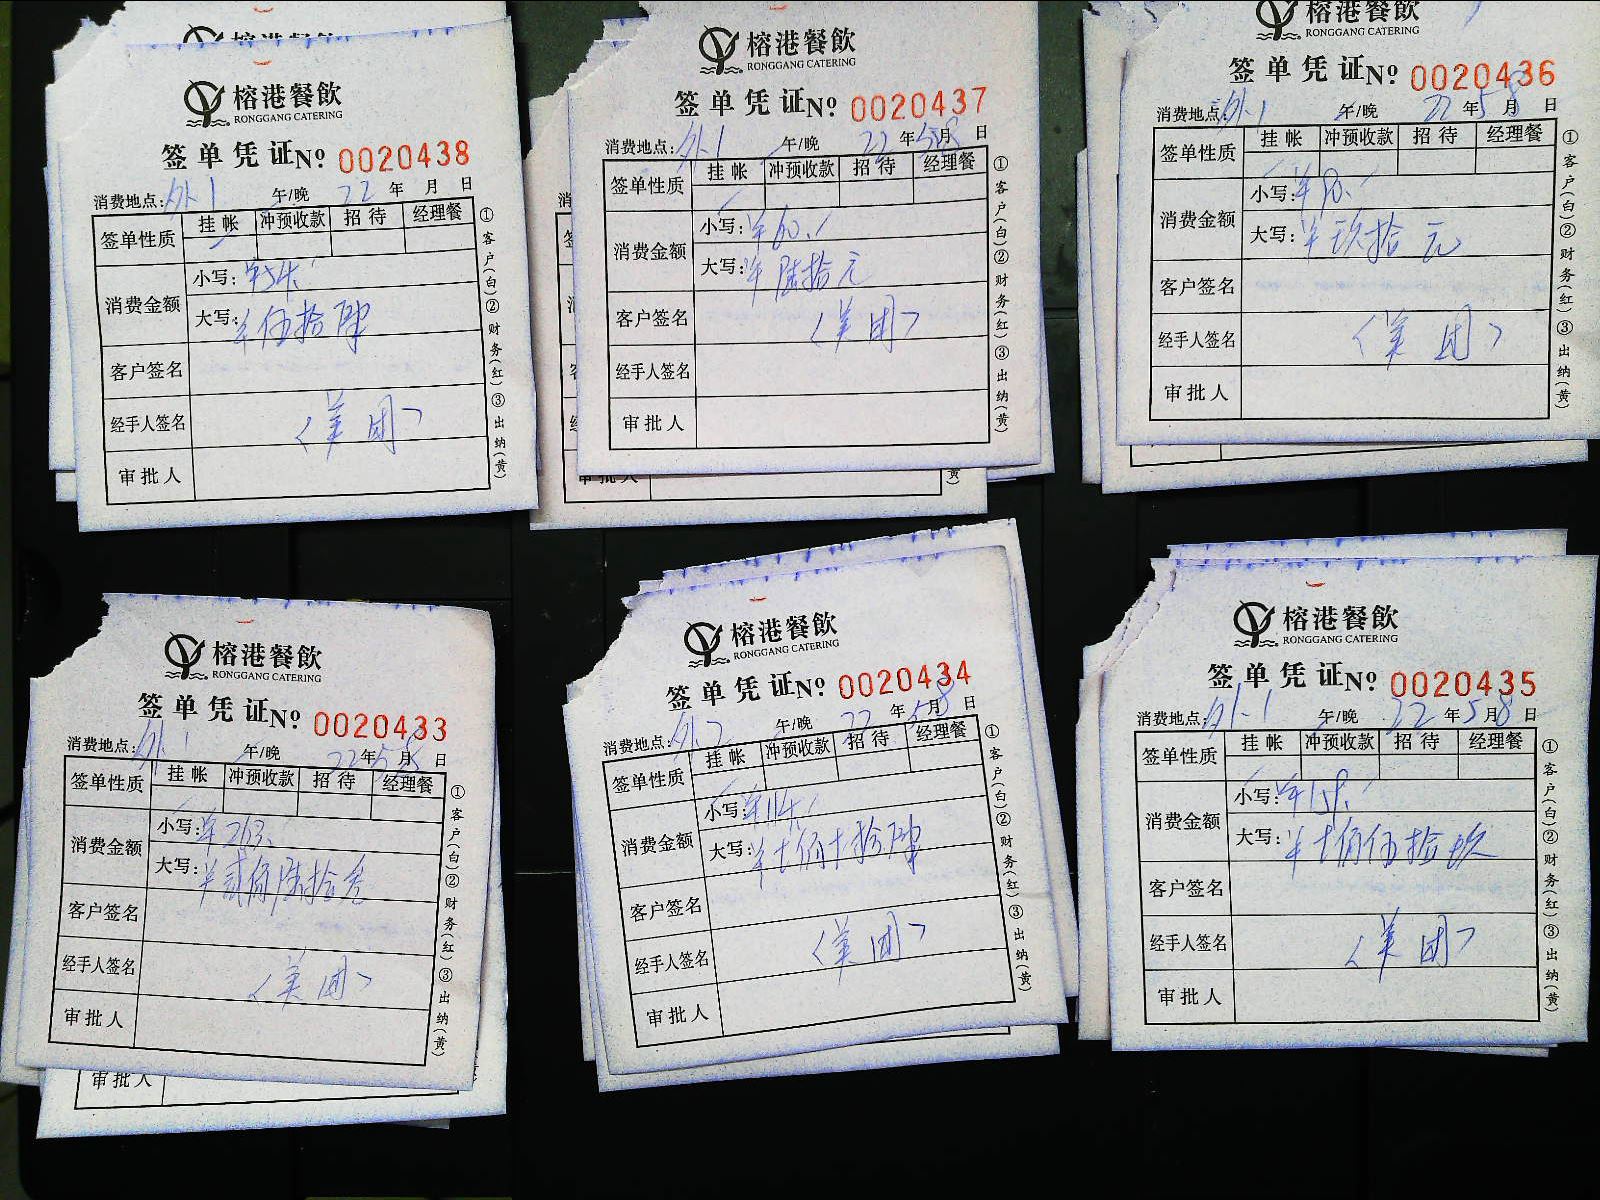 榕港餐飲
RONGGANG CATERING
签单凭证№ 0020438
消费地点: 外1 午/晚 22年 月 日
签单性质 挂帐 冲预收款 招待 经理餐
消费金额 小写: ¥54.
大写: ¥伍拾肆
客户签名
经手人签名 〈美团〉
审批人
①客户(白)②财务(红)③出纳(黄)
榕港餐飲
RONGGANG CATERING
签单凭证№ 0020437
消费地点: 外1 午/晚 22年5月8日
签单性质 挂帐 冲预收款 招待 经理餐
消费金额 小写: ¥60.
大写: ¥陆拾元
客户签名 〈美团〉
经手人签名
审批人
①客户(白)②财务(红)③出纳(黄)
审批人
榕港餐飲
RONGGANG CATERING
签单凭证№ 0020436
消费地点: 外1 午/晚 22年5月8日
签单性质 挂帐 冲预收款 招待 经理餐
消费金额 小写: ¥90.
大写: ¥玖拾元
客户签名
经手人签名 〈美团〉
审批人
①客户(白)②财务(红)③出纳(黄)
榕港餐飲
RONGGANG CATERING
签单凭证№ 0020433
消费地点: 外1 午/晚 22年5月8日
签单性质 挂帐 冲预收款 招待 经理餐
消费金额 小写: ¥263.
大写: ¥贰佰陆拾叁
客户签名
经手人签名 〈美团〉
审批人
①客户(白)②财务(红)③出纳(黄)
审批人
榕港餐飲
RONGGANG CATERING
签单凭证№ 0020434
消费地点: 外2 午/晚 22年5月8日
签单性质 挂帐 冲预收款 招待 经理餐
消费金额 小写: ¥114.
大写: ¥士佰士拾肆
客户签名
经手人签名 〈美团〉
审批人
①客户(白)②财务(红)③出纳(黄)
榕港餐飲
RONGGANG CATERING
签单凭证№ 0020435
消费地点: 外1 午/晚 22年5月8日
签单性质 挂帐 冲预收款 招待 经理餐
消费金额 小写: ¥159.
大写: ¥士佰伍拾玖
客户签名
经手人签名 〈美团〉
审批人
①客户(白)②财务(红)③出纳(黄)